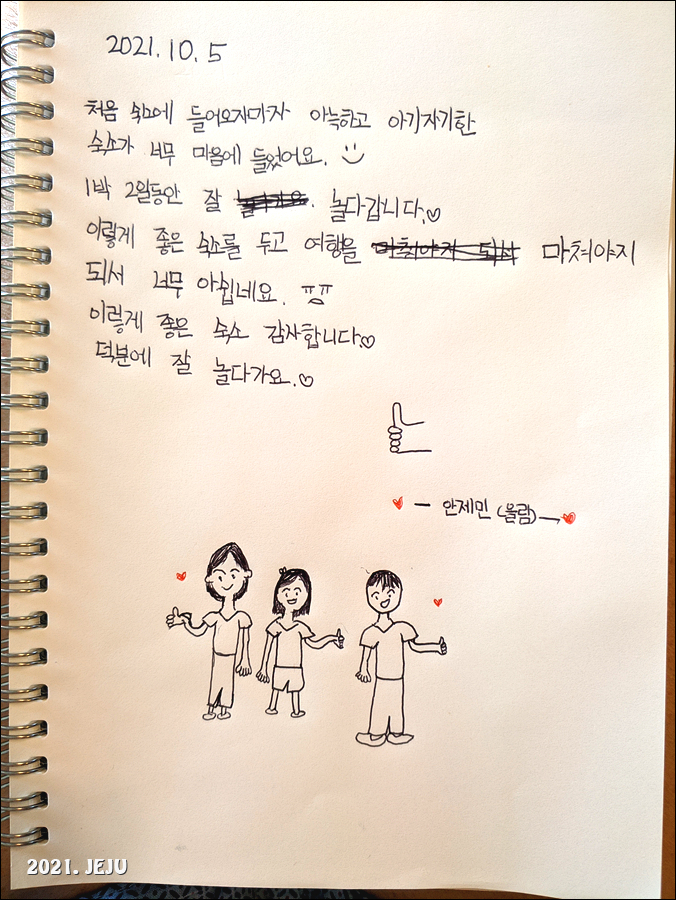 2021.10.5
처음 숙소에 들어오자마자 아늑하고 아기자기한
숙소가 너무 마음에 들었어요.
1박 2일동안 잘 놀다가요. 놀다갑니다.♡
이렇게 좋은 숙소를 두고 여행을 마쳐야지 되서 마쳐야지
되서 너무 아쉽네요. ㅠㅠ
이렇게 좋은 숙소 감사합니다♡
덕분에 잘 놀다가요.♡
♥ - 안제민 (올림)→♥
2021. JEJU